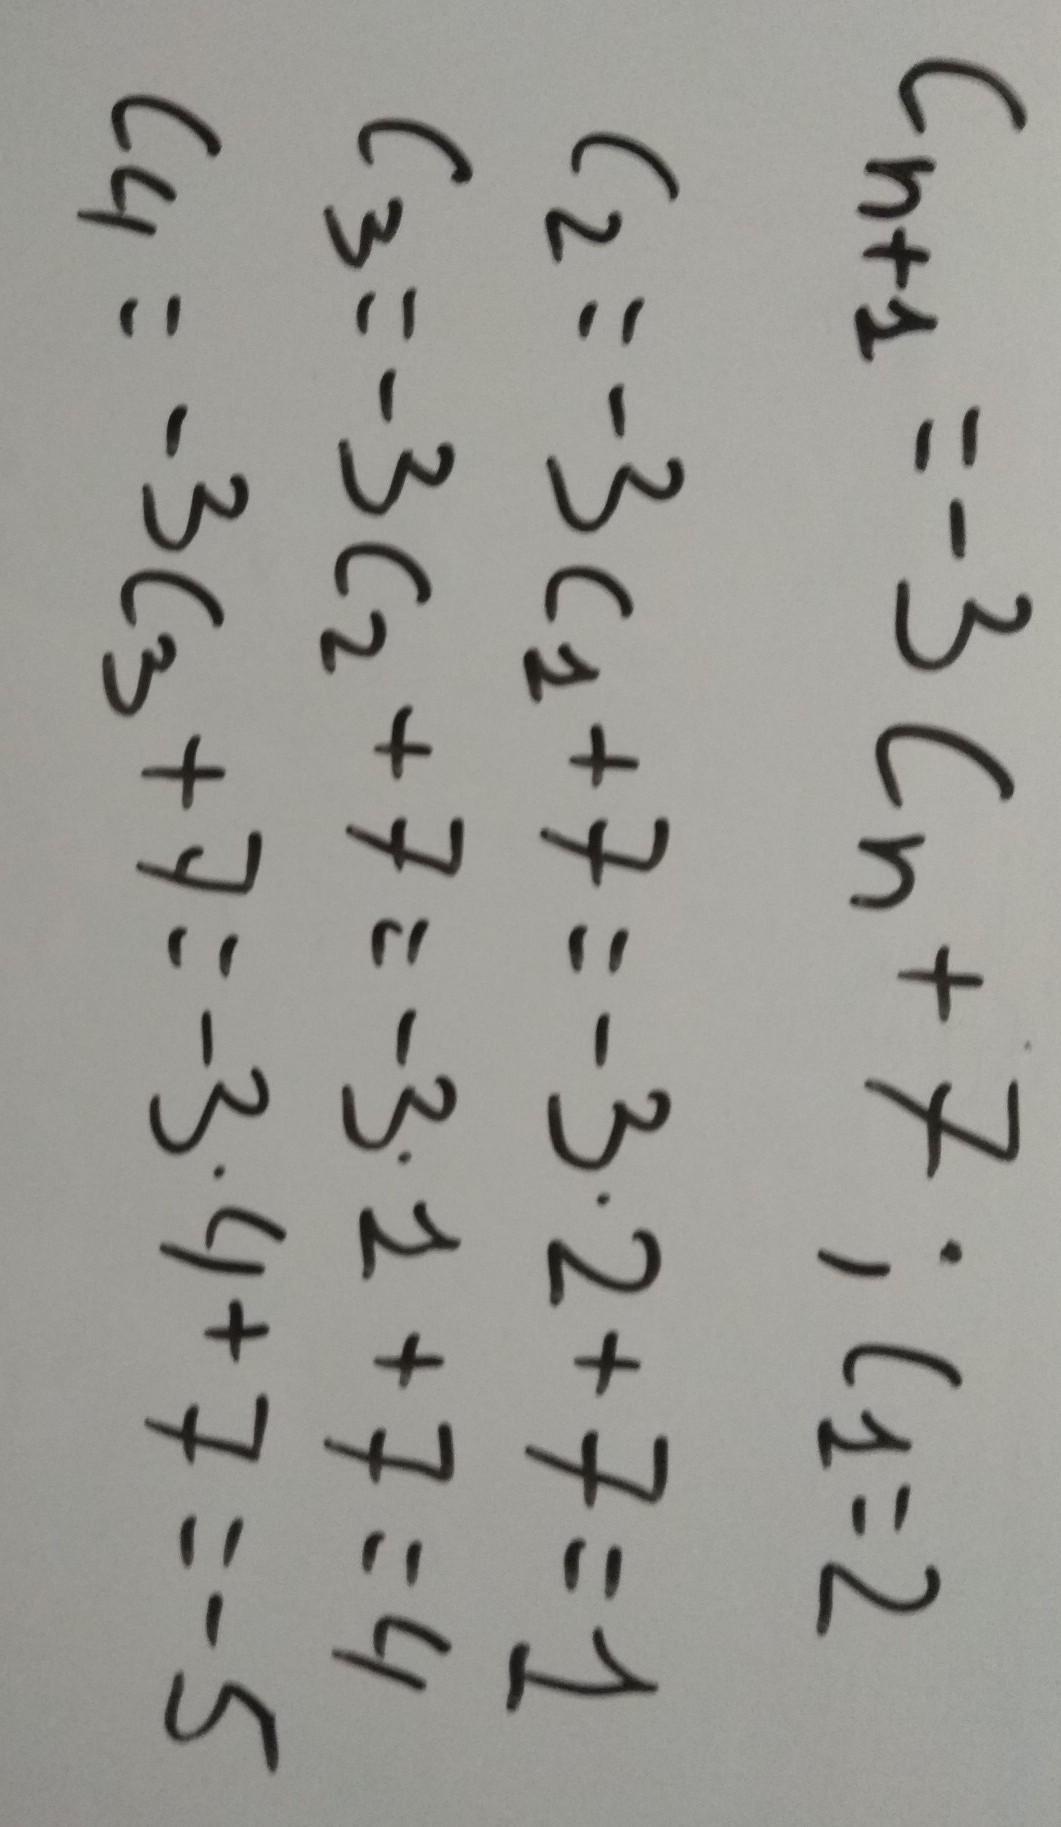 Cn+1 = -3Cn + 7 ; C1 = 2
C2 = -3C1 + 7 = -3·2 + 7 = 1
C3 = -3C2 + 7 = -3·1 + 7 = 4
C4 = -3C3 + 7 = -3·4 + 7 = -5